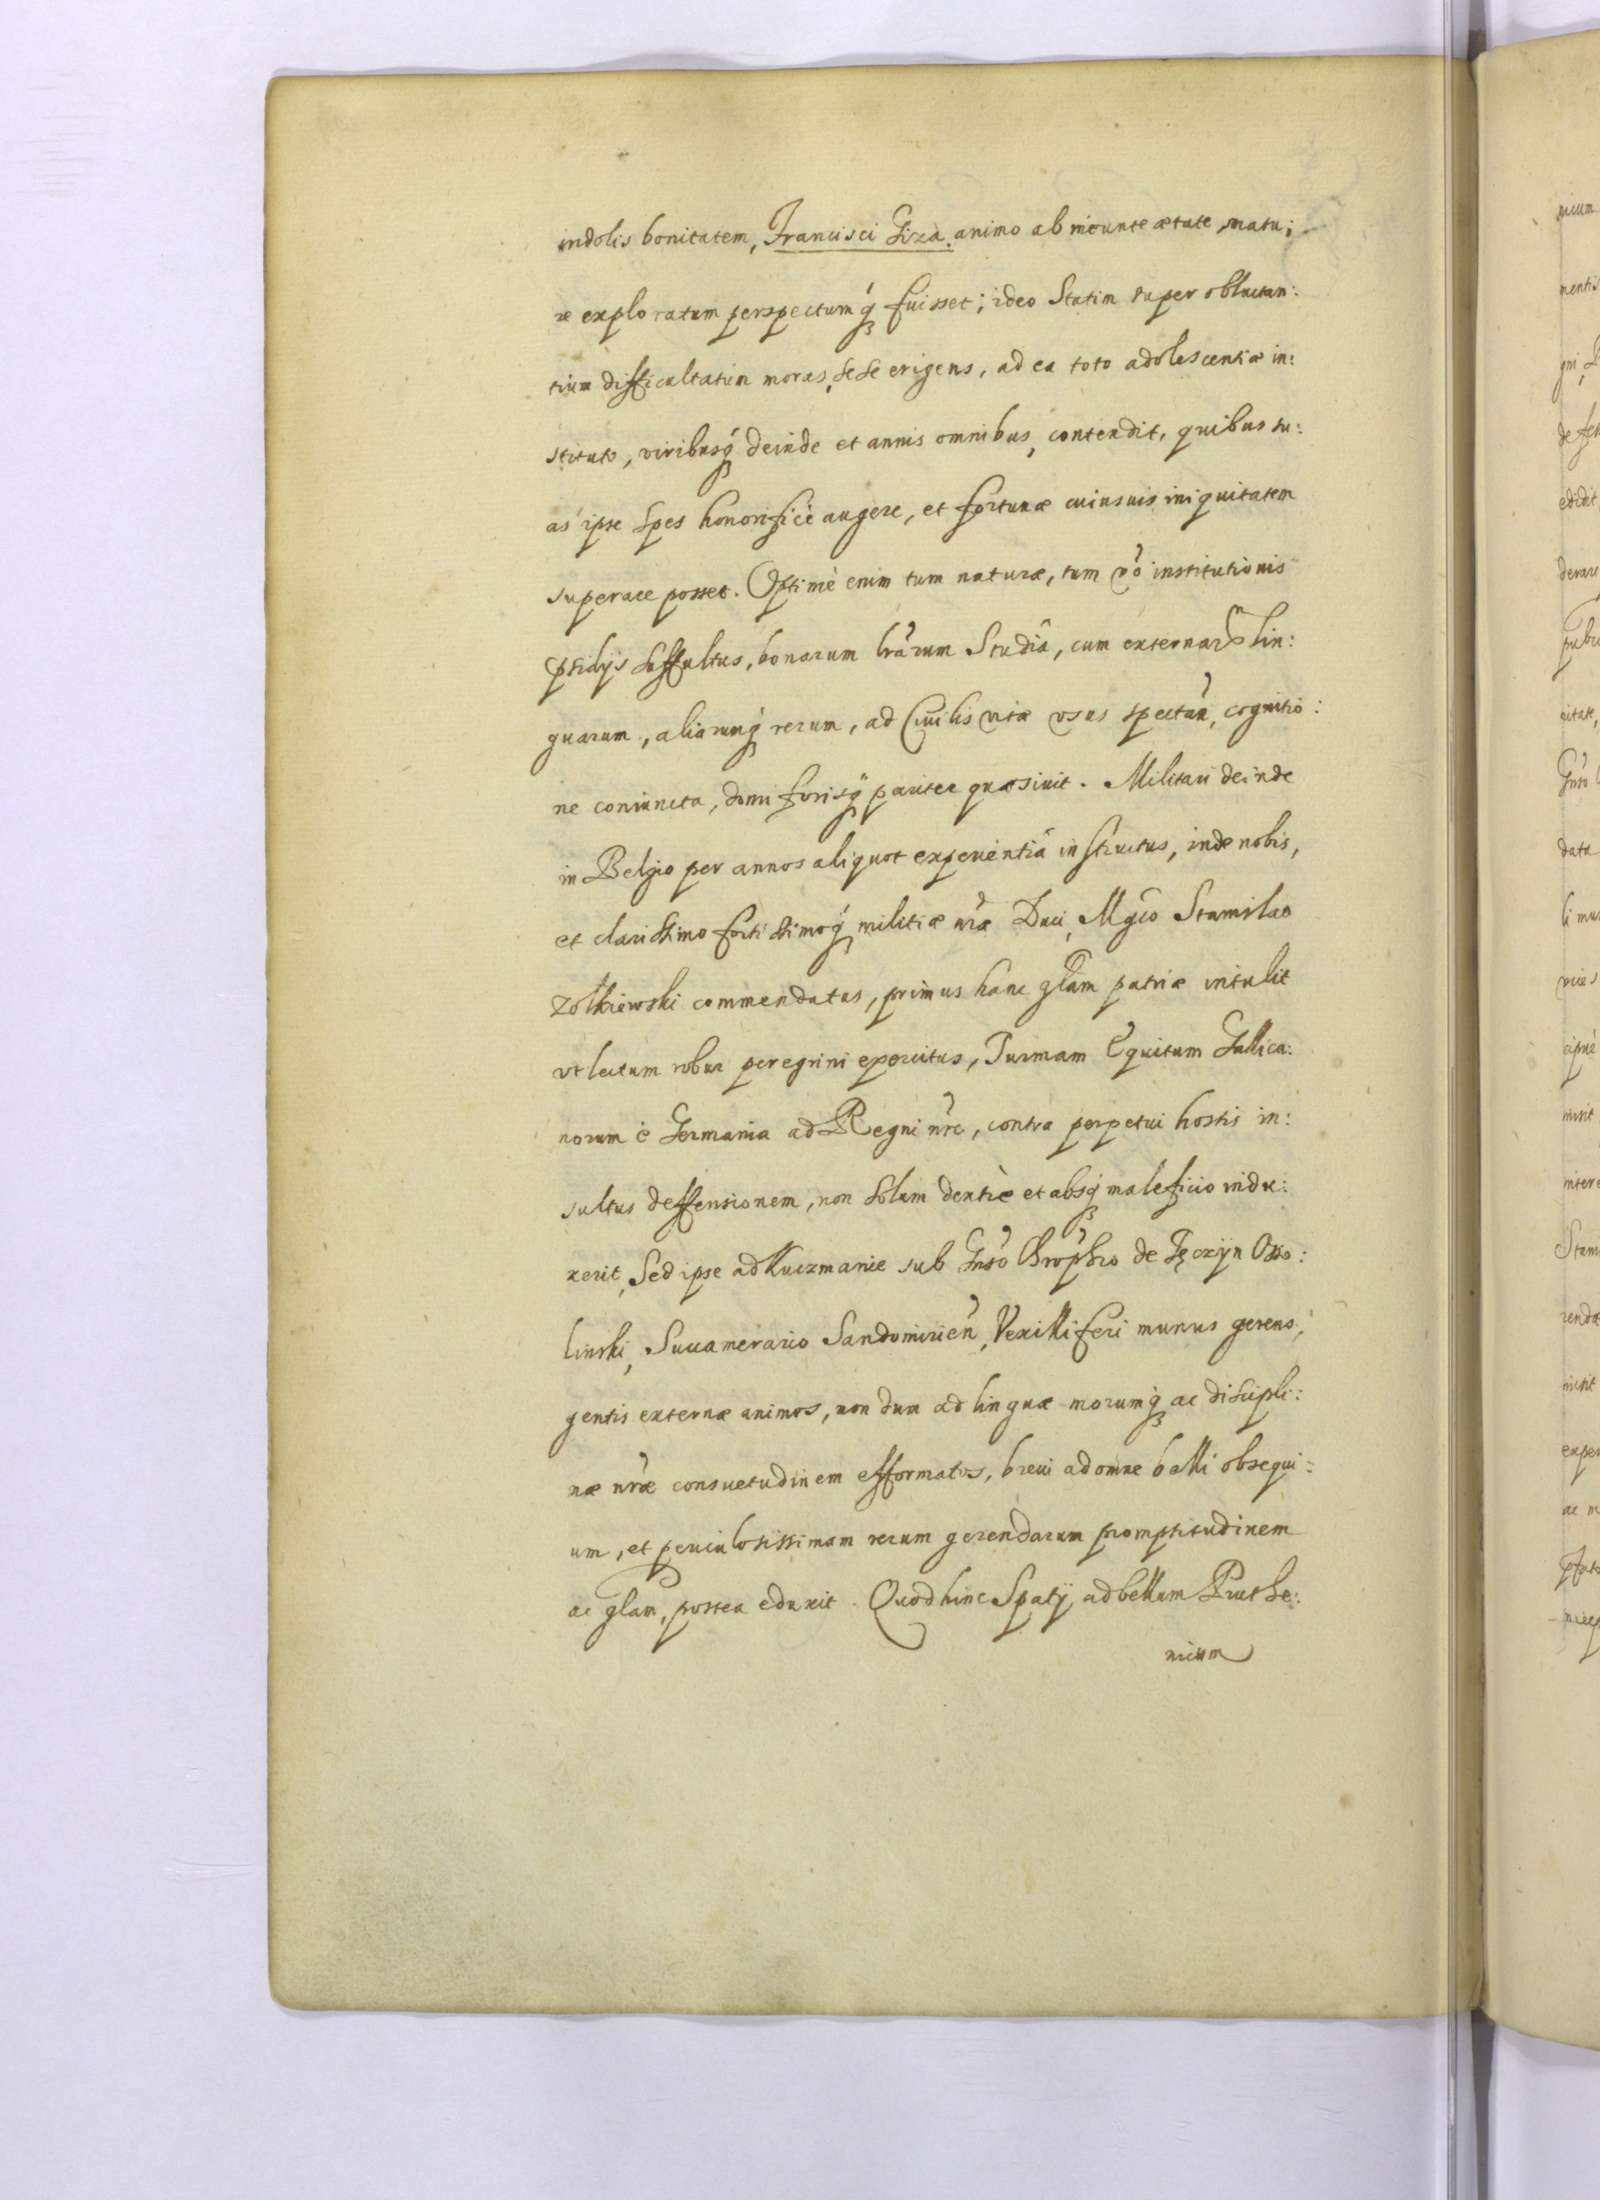 indolis bonitatem, Francisci Giza animo ab ineunte ætate, matu:
re exploratum perspectumq́ꝫ fuisset; ideo Statim super obluctan:
tium difficultatum moras, sese erigens, ad ea toto adolescentiæ in:
stituto, viribusq́ꝫ deinde et annis omnibus, contendit, quibus su:
as ipse spes honorificè augere, et fortunæ cuiusuis iniquitatem
superare posset. Optimè enim tum naturæ, tum vo᾽ institutionis
pſidijs suffultus, bonarum lrãrum Studia, cum externarꝝ lin:
guarum, aliarumq́ꝫ rerum, ad Ciuilis vitæ vsus spectañ, cognitio:
ne coniuncta, domi forisq́ꝫ pariter quæsiuit. Militari deinde
in Belgio per annos aliquot experientiâ instructus, inde nobis,
et clarissimo fortissimoq́ꝫ militiæ nr̃æ Duci, Mgco Stanislao
Zołkiewski commendatus, primus hanc glam patriæ intulit
vt lectum robur peregrini exercitus, Turmam Equitum Gallica:
norum è Germania ad Regni nr̃i, contra perpetui hostis in:
sultus deffensionem, non solum decentè et absq́ꝫ maleficio indu:
xerit, Sed ipse ad Kuczmanie sub Gnso Chrophro de Tęczijn Osso:
linski, Succamerario Sandomirieñ, Vexilliferi munus gerens,
gentis externæ animos, non dum ad linguæ morumq́ꝫ ac discipli:
næ nr̃æ consuetudinem efformatos, breui ad omne belli obsequi:
um, et periculosissimam rerum gerendarum promptitudinem
ac glam, postea eduxit. Quod hinc Spatij ad bellum Pruthe:
nicum
nicum
mentis
gni,
edidit
data